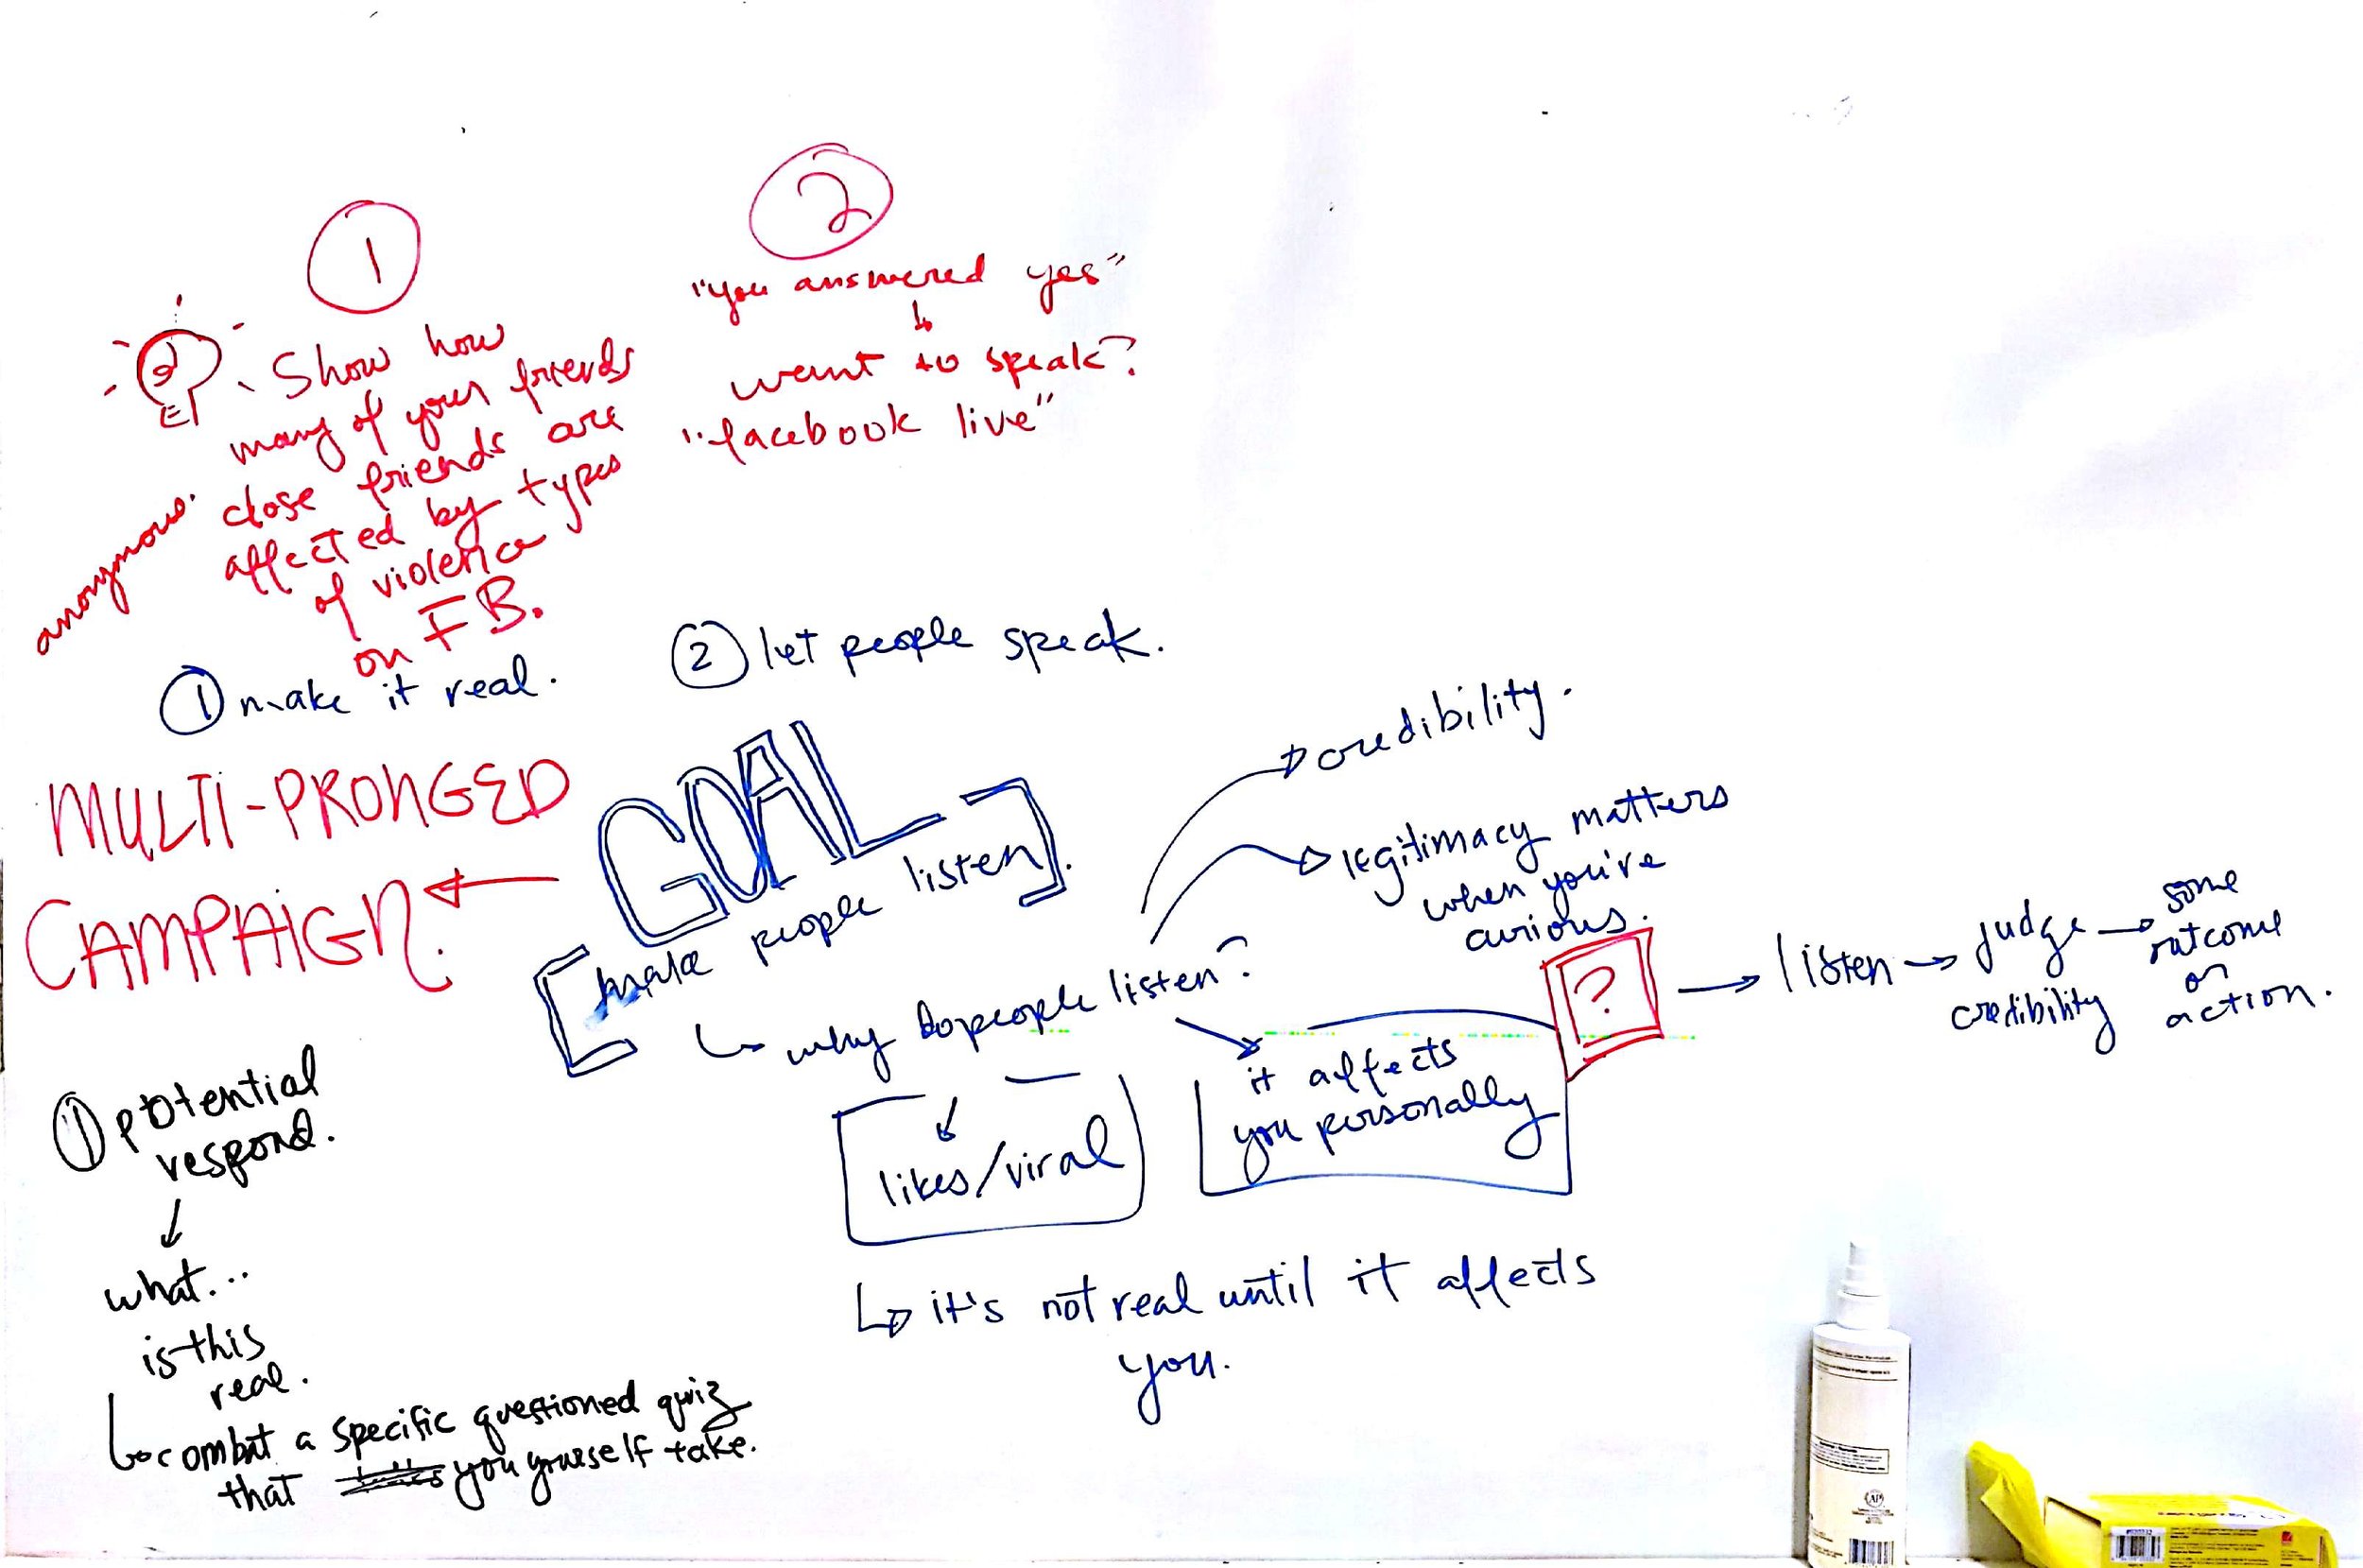 1
Show how
many of your friends
close friends are
affected by types
of violence
on FB.
anonymous.
2
"you answered yes"
want to speak?
"facebook live"
1 make it real.
2 let people speak.
MULTI-PRONGED
CAMPAIGN.
GOAL
[make people listen].
why do people listen?
credibility.
legitimacy matters
when you're
curious.
likes/viral
it affects
you personally
?
listen → judge → some
credibility
outcome
or
action.
it's not real until it affects
you.
1 potential
respond.
what...
is this
real.
combat a specific questioned quiz
that you yourself take.
AP